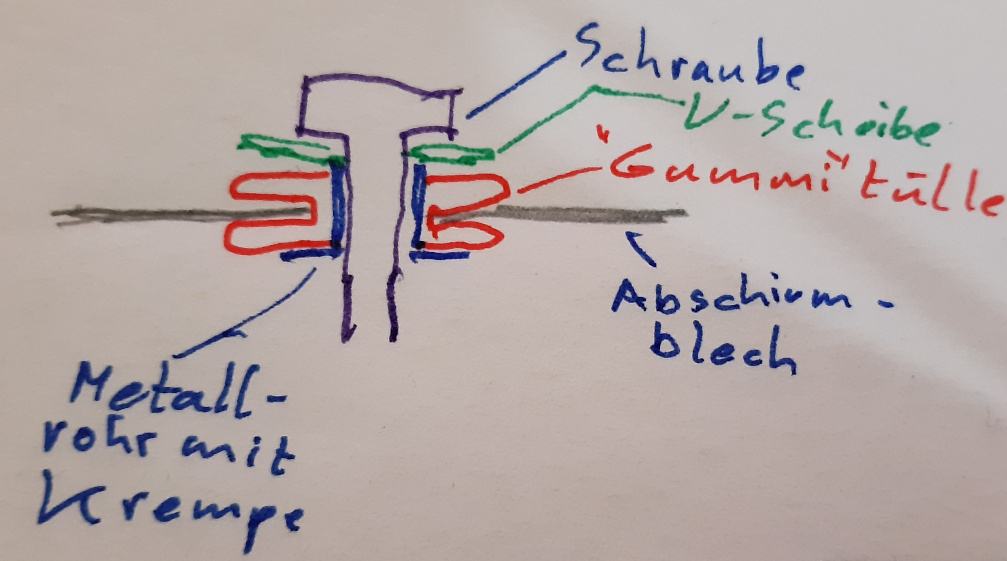 Schraube
U-Scheibe
"Gummi"tülle
Abschirm-
blech
Metall-
rohr mit
Krempe